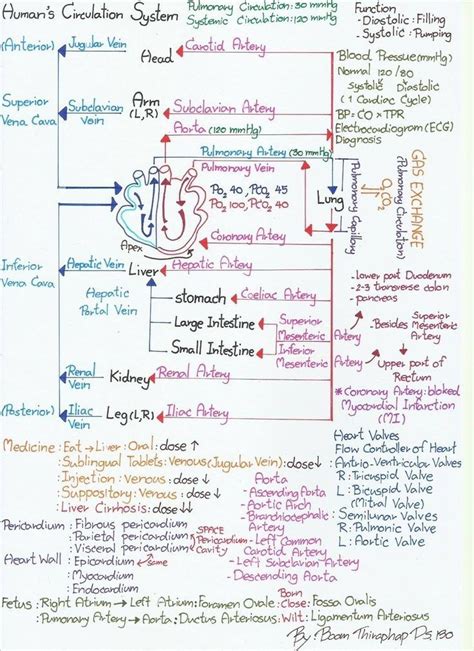 Human's Circulation System
Pulmonary Circulation: 30 mmHg
Systemic Circulation: 120 mmHg
Function
- Diastolic: Filling
- Systolic: Pumping
(Anterior)
Jugular Vein
Head
Carotid Artery
Blood Pressure(mmHg)
Normal 120/80
Systolic Diastolic
(1 Cardiac Cycle)
BP = CO × TPR
Electrocardiogram (ECG)
Diagnosis
Superior
Vena Cava
Subclavian
Vein
Arm
(L,R)
Subclavian Artery
Aorta (120 mmHg)
Pulmonary Artery (30 mmHg)
Pulmonary Vein
PO2 40, PCO2 45
PO2 100, PCO2 40
Lung
Pulmonary Capillary
O2
CO2
(Pulmonary Circulation)
GAS EXCHANGE
Apex
Coronary Artery
Inferior
Vena Cava
Hepatic Vein
Liver
Hepatic Artery
Hepatic
Portal Vein
stomach
Coeliac Artery
Large Intestine
Superior
Mesenteric
Artery
Small Intestine
Inferior
Mesenteric
Artery
- lower part Duodenum
- 2-3 transverse colon
- pancreas
. Besides
Superior
Mesenteric
Artery
Upper part of
Rectum
Renal
Vein
Kidney
Renal Artery
* Coronary Artery: bloked
Myocardial Infarction
(MI)
(Posterior)
Iliac
Vein
Leg (L,R)
Iliac Artery
Medicine: Eat → Liver: Oral: dose ↑
: Sublingual Tablets: Venous (Jugular Vein): dose ↓
: Injection: Venous: dose ↓
: Suppository: Venous: dose ↓
: Liver Cirrhosis: dose ↓↓
Heart Valves
Flow Controller of Heart
: Antrio-Ventricular Valves
R: Tricuspid Valve
L: Bicuspid Valve
(Mitral Valve)
: Semilunar Valves
R: Pulmonic Valve
L: Aortic Valve
Aorta
- Ascending Aorta
- Aortic Arch
- Brandhiocephalic
Artery
- Left Common
Carotid Artery
- Left Subclavian Artery
- Descending Aorta
Pericardium: Fibrous pericardium
: Parietal pericardium
: Visceral pericardium
SPACE
Pericardium
Cavity
Heart Wall: Epicardium
same
: Myocardium
: Endocardium
Fetus: Right Atrium → Left Atrium: Foramen Ovale: Close: Fossa Ovalis
Born
: Pumonary Artery → Aorta: Ductus Arteriosus: Wilt: Ligamentum Arteriosus
By: Boom Thiraphap